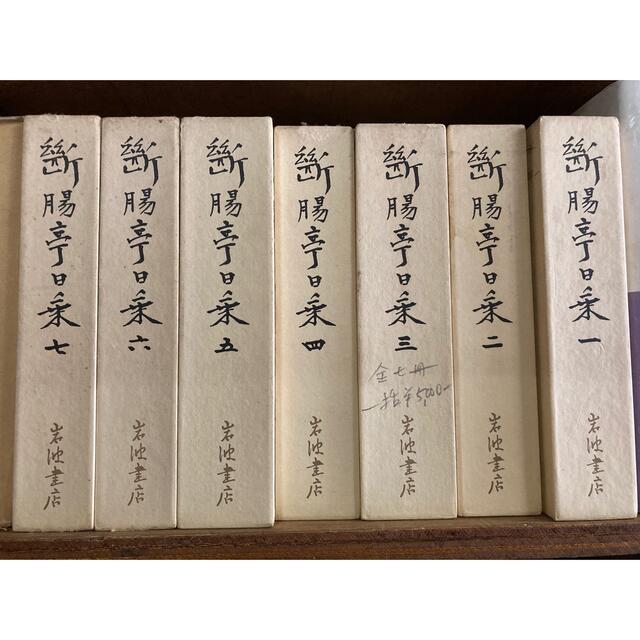 斷腸亭日乗 一
岩波書店
斷腸亭日乗 二
岩波書店
斷腸亭日乗 三
全七冊
一括¥5,000-
岩波書店
斷腸亭日乗 四
岩波書店
斷腸亭日乗 五
岩波書店
斷腸亭日乗 六
岩波書店
斷腸亭日乗 七
岩波書店